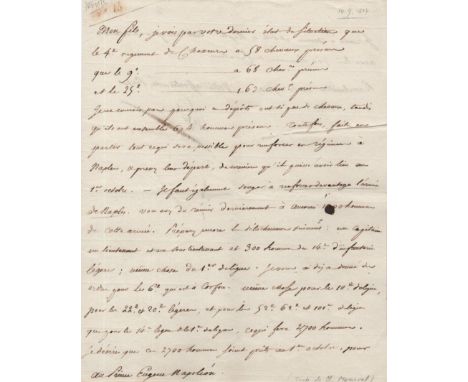 14. 9. 1807
Mon fils, je vois par votre dernier état de situation que
le 4e régiment de Chasseurs a 58 chevaux présens
que le 9e a 68 chev. présens
et le 25e 163 chev. présens
Je ne conçois pas pourquoi ces dépôts ont si peu de chevaux, tandis
qu'ils ont ensemble 604 hommes présens. Toutefois, faites en
partir tout ce qui sera possible pour renforcer ces régimens à
Naples, et pressez leur départ, de manière qu'il puisse avoir lieu au
1er octobre. — Il faut également songer à renforcer davantage l'armée
de Naples. Vous avez dû réunir dernièrement à Ancône hommes
de cette armée. Préparez encore le détachement suivant: un capitaine
un lieutenant et un sous lieutenant et 300 hommes du 14e d'infanterie
légère; même chose du 1er de ligne. Je vous ai déjà donné des
ordres pour le 6e qui est à Corfou. même chose pour le 10e de ligne,
pour les 22e et 20e légères, et pour les 52e 62e et 101e de ligne
que pour le 14e léger et le 1er de ligne, ce qui fera 2700 hommes.
je désire que ces 2700 hommes soient prêts au 1er octobre, pour
Au Prince Eugène Napoléon